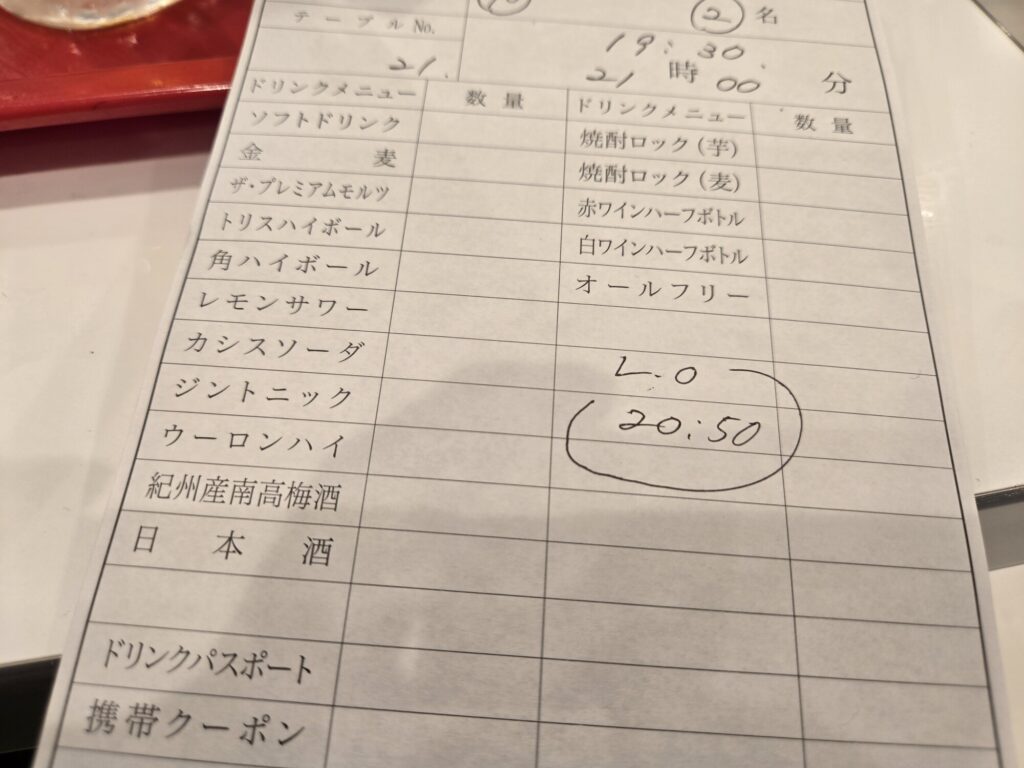 ② 名
テーブルNo.
21.
19:30.
21 時 00 分
ドリンクメニュー 数量 ドリンクメニュー 数量
ソフトドリンク 焼酎ロック(芋)
金麦 焼酎ロック(麦)
ザ・プレミアムモルツ 赤ワインハーフボトル
トリスハイボール 白ワインハーフボトル
角ハイボール オールフリー
レモンサワー
カシスソーダ L.O
ジントニック 20:50
ウーロンハイ
紀州産南高梅酒
日本酒
ドリンクパスポート
携帯クーポン